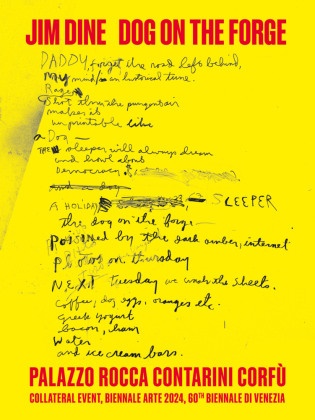 JIM DINE DOG ON THE FORGE
DADDY, forget the road left behind,
My mind in an historical time.
Rage
Shot thru the pungent air
makes it
unprintable like
a Dog
THE sleeper will always dream
and howl about
Democracy
and a dog
A HOLIDAY SLEEPER
the dog on the forge
Poisoned by the dark amber, internet
Photos on Thursday
NEXT Tuesday we wash the sheets.
Coffee, dog, eggs, oranges etc.
Greek Yogurt
bacon, ham
Water
and ice cream bars.
PALAZZO ROCCA CONTARINI CORFÙ
COLLATERAL EVENT, BIENNALE ARTE 2024, 60TH BIENNALE DI VENEZIA